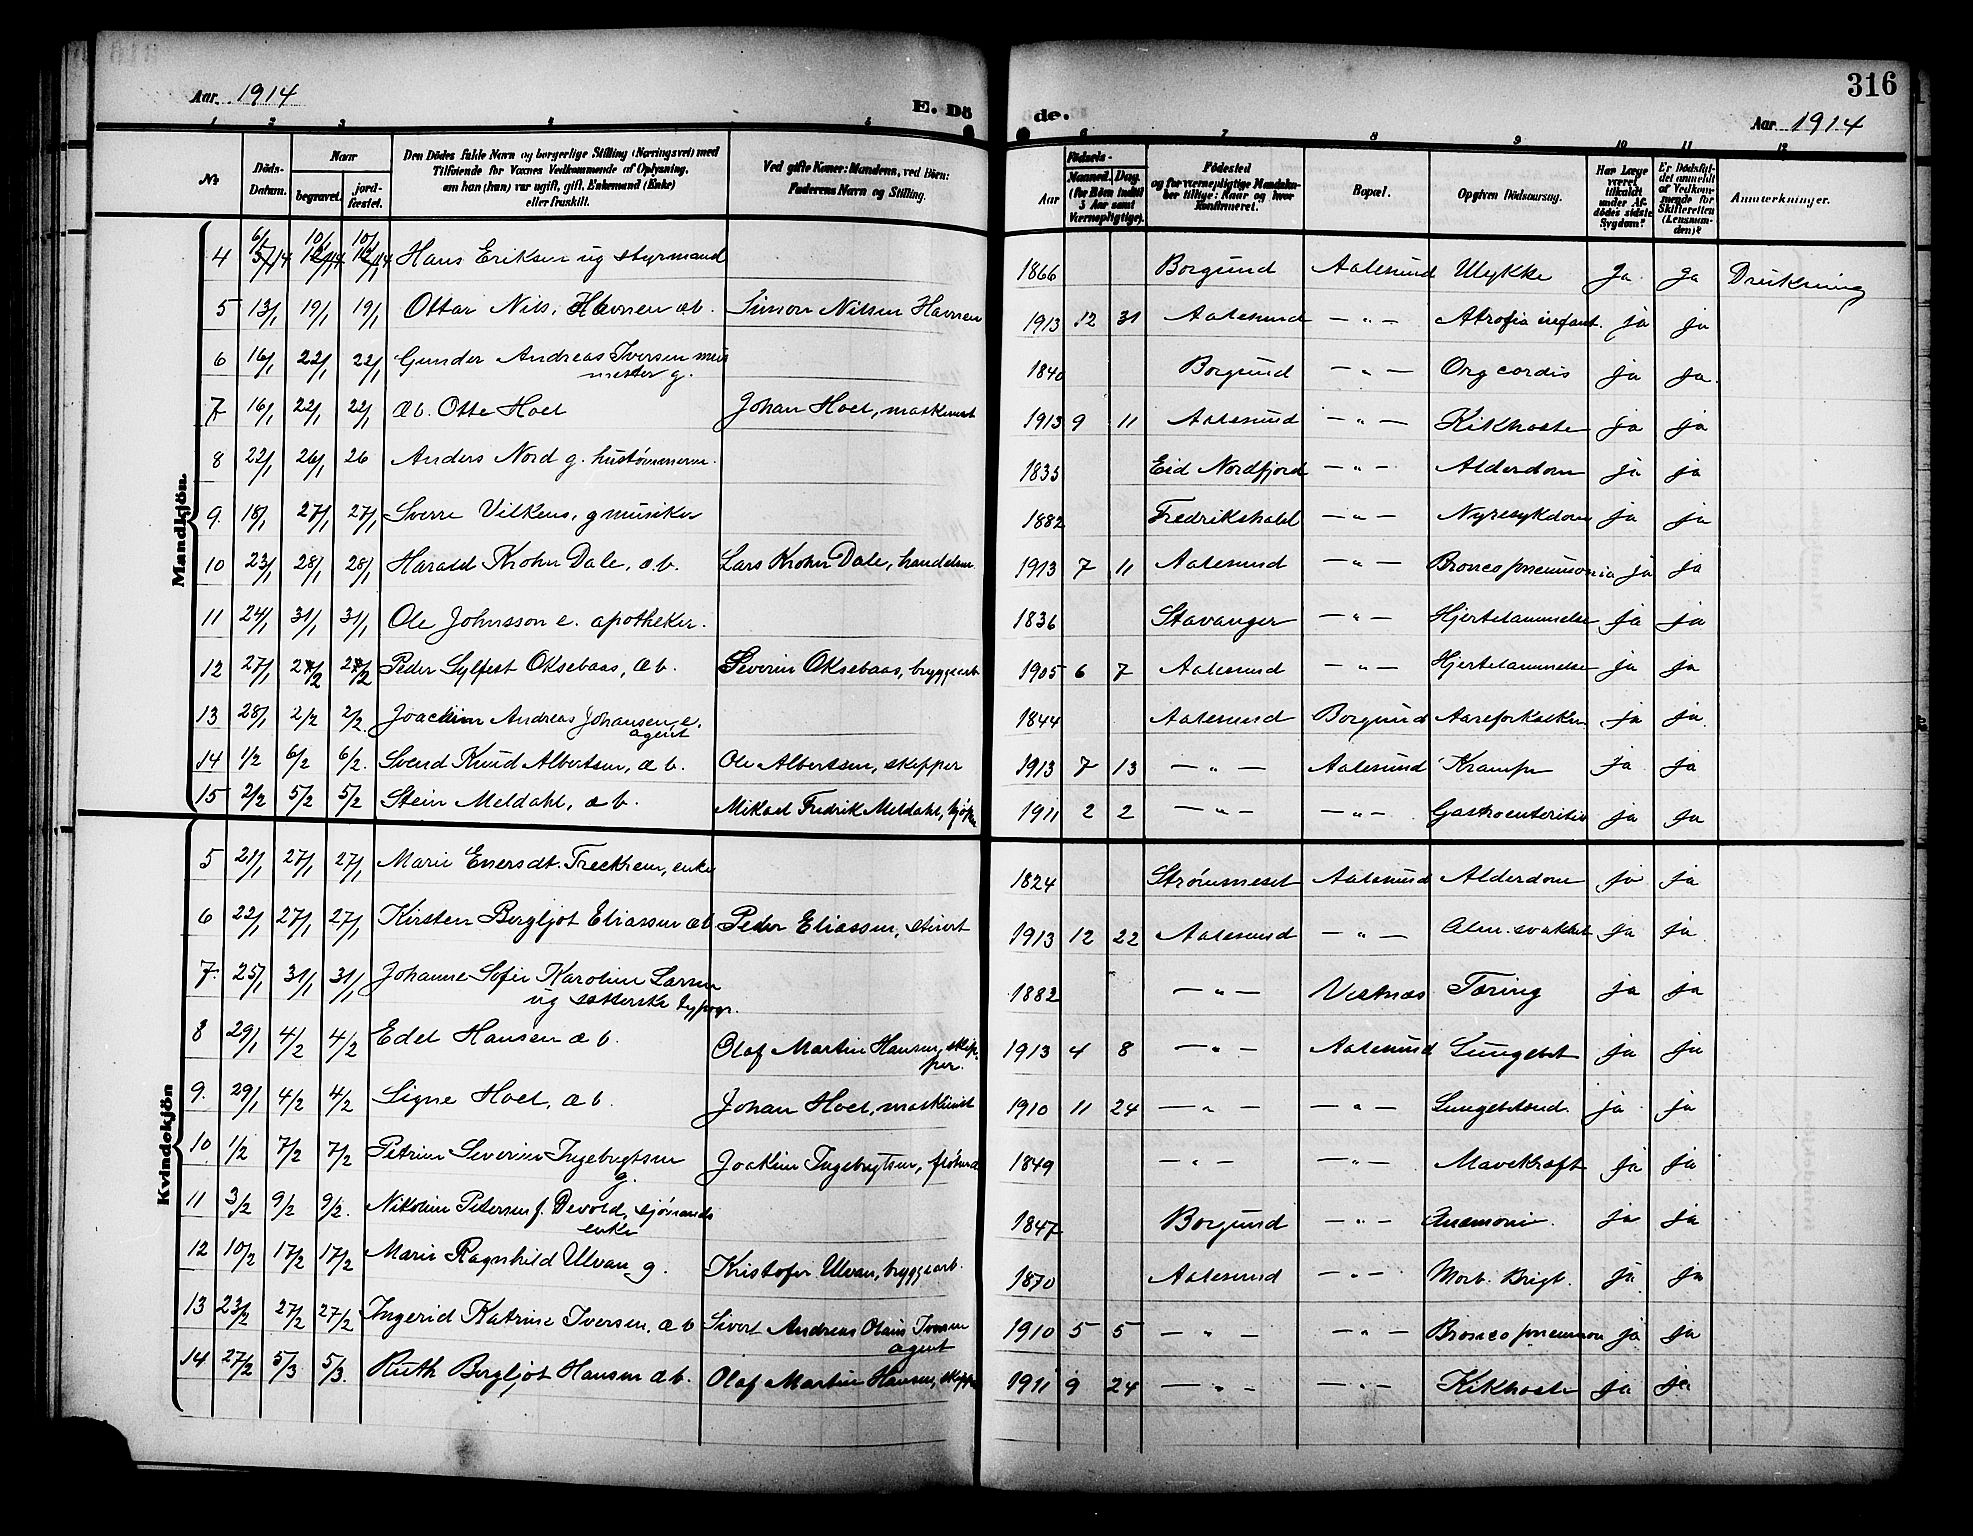 316
Aar 1914 E. Dö de. Aar 1914
1 2 3 4 5 6 7 8 9 10 11 12
No. Döds-Datum. Naar begravet. jordfæstet. Den Dödes fulde Navn og borgerlige Stilling (Næringsvei) med Tilföiende for Voxnes Vedkommende af Oplysning, om han (hun) var ugift, gift, Enkemand (Enke) eller fraskilt. Ved gifte Koner: Mandens, ved Börn: Faderens Navn og Stilling. Aar Födsels- Maaned. Dag. (for Börn indtil 3 Aar samt Værnepligtige). Födested og for værnepligtige Mandskaber tillige: Naar og hvor konfirmeret. Bopæl. Opgiven Dödsaarsag. Har Læge været tilkaldt under Afdödes sidste Sygdom? Er Dödsfaldet anmeldt af Vedkommende for Skifteretten (Lensmanden)? Anmærkninger.
Mandkjön.
4 6/1 14 10/1 14 10/1 14 Hans Eriksen ug styrmand 1866 Borgund Aalesund Ulykke Ja ja Drukning
5 13/1 19/1 19/1 Ottar Nils. Havnen æb. Simon Nilsen Havnen 1913 12 31 Aalesund — " — Atrofia infant. ja ja
6 16/1 22/1 22/1 Gunder Andreas Iversen mur
mester g. 1840 Borgund — " — Org cordis ja ja.
7 16/1 22/1 22/1 æb. Otte Hoel Johan Hoel, maskinist 1913 9 11 Aalesund — " — Kikhoste ja ja
8 22/1 26/1 26 Anders Nord g. hustømmerm. 1835 Eid Nordfjord — " — Alderdom ja ja
9. 18/1 27/1 27/1 Sverre Vilkens, g musiker 1882 Fredrikshald — " — Nyresykdom ja ja
10 23/1 28/1 28/1 Harald Krohn Dale, æ.b. Lars Krohn Dale, handelsm. 1913 7 11 Aalesund — " — Broncopneumonia ja ja
11 24/1 31/1 31/1 Ole Johnsson e. apotheker. 1836 Stavanger — " — Hjertelammelse ja ja
12 27/1 2/2 2/2 Peder Sylfest Oksebaas, æb. Severin Oksebaas, bryggearb 1905 6 7 Aalesund — " — Hjertelammelse ja ja
13 28/1 2/2 2/2. Joachim Andreas Johansen, e.
agent 1844 Aalesund Borgund Aareforkalkn ja ja.
14 1/2 6/2 6/2. Svend Knud Albertsen, æ b. Ole Albertsen, skipper 1913 7 13 — " — Aalesund Krampe ja ja
15 2/2 5/2 5/2 Stein Meldahl, æ b. Mikael Fredrik Meldahl, kjøpm 1911 2 2 — " — — " — Gastroenteritis ja ja
Kvindekjön
5 21/1 27/1 27/1 Marie Enersdt. Treekrem, enke 1824 Strømmeset Aalesund Alderdom ja ja
6 22/1 27/1 27/1 Kirsten Bergljot Eliassen æb Peder Eliassen, stuert 1913 12 22 Aalesund — " — Alm. svakhet ja ja.
7. 25/1 31/1 31/1 Johanne Sofie Karoline Larsen
ug sætterske typogr. 1882 — " — Vestnæs Tæring ja ja
8 29/1 4/2 4/2 Edel Hansen æ b. Olaf Martin Hansen, skip-
per. 1913 4 8 — " — Aalesund Lungebet ja ja
9. 29/1 4/2 4/2 Signe Hoel, æ b. Johan Hoel, maskinist 1910 11 24 — " — — " — Lungebetænd. ja ja
10 1/2 7/2 7/2 Petrine Severine Ingebrigtsen
g. Joakim Ingebrigtsen, 1849 — " — — " — Mavekræft ja ja
11 3/2 9/2 9/2. Nikoline Petersen f. Devold, sjømands
enke 1847 Borgund — " — ja ja
12 10/2 17/2 17/2 Marie Ragnhild Ulvan g. Kristofer Ulvan, bryggearb. 1870 Aalesund — " — Morb. Brigt. ja ja
13 23/2 27/2 27/2 Ingerid Katrine Iversen, æ b Sivert Andreas Olaus Iversen
agent 1910 5 5 — " — — " — Broncopneumon ja ja
14 27/2 5/3 5/3. Ruth Bergljot Hansen æb. Olaf Martin Hansen, skipper 1911 9 24 — " — — " — Kikhoste ja ja